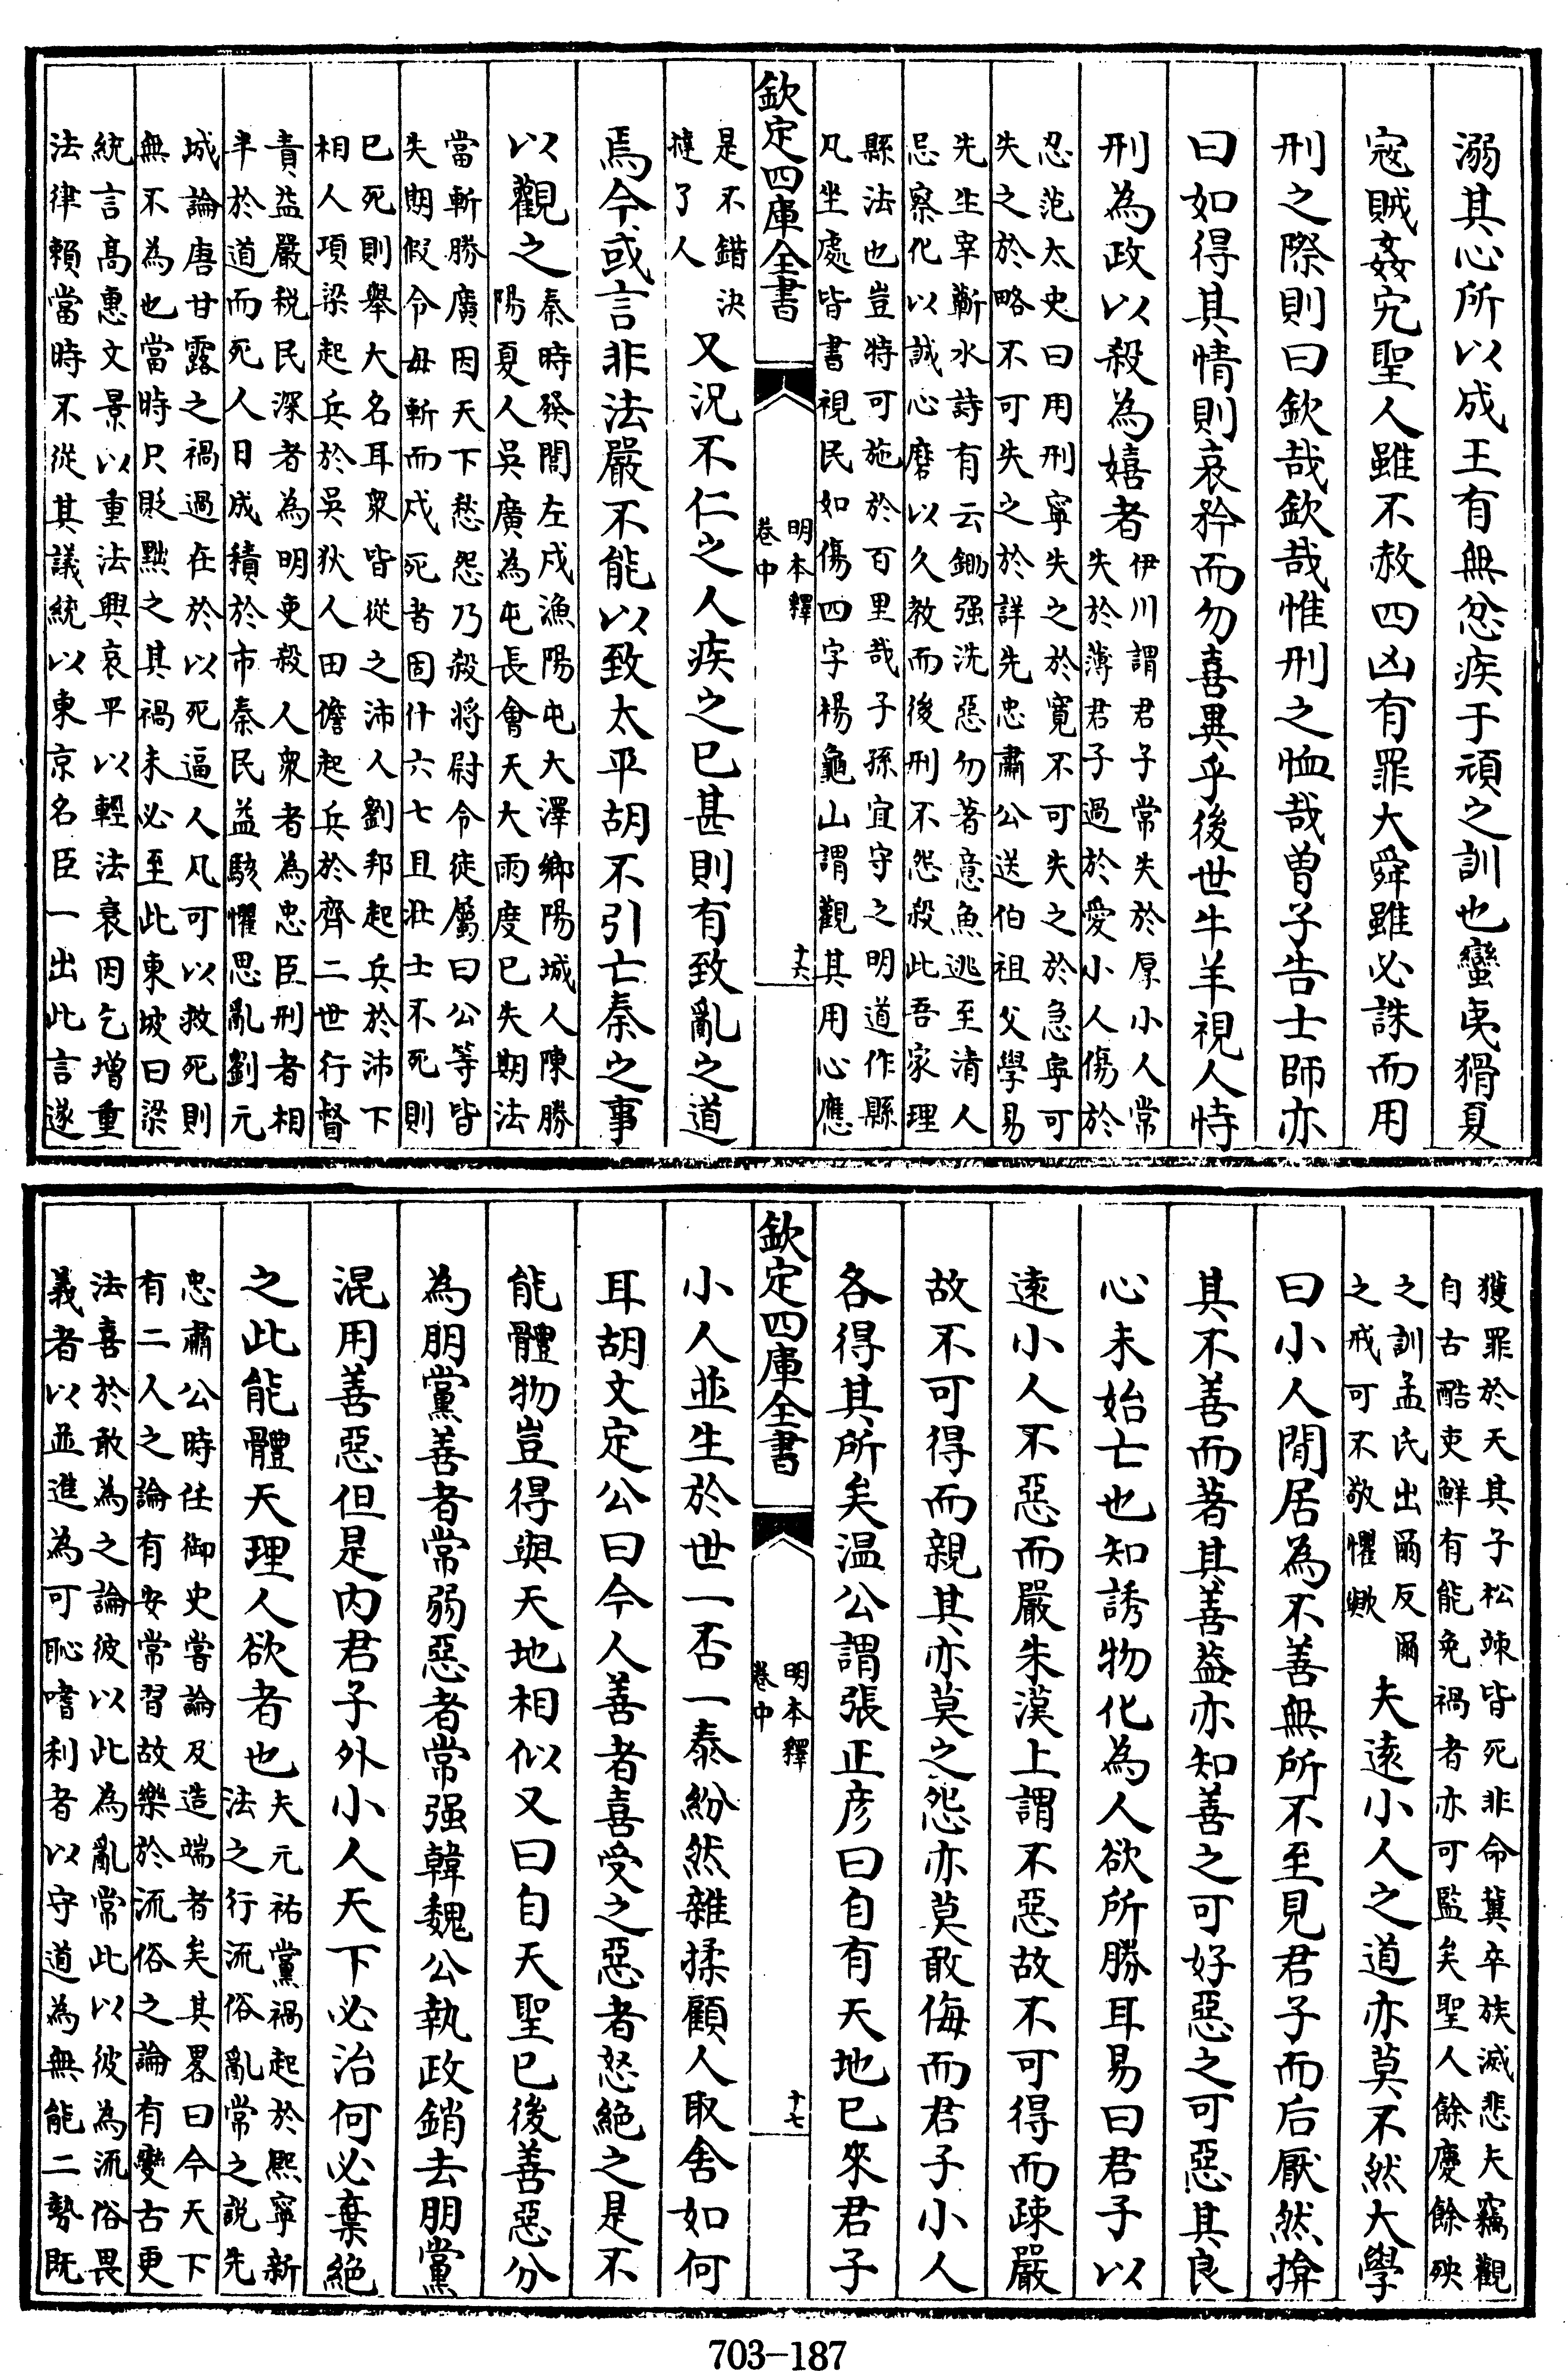 溺其心所以成王有無忿疾于頑之訓也蠻夷猾夏
寇賊姦宄聖人雖不赦四凶有罪大舜雖必誅而用
刑之際則曰欽哉欽哉惟刑之恤哉曾子告士師亦
曰如得其情則哀矜而勿喜異乎後世牛羊視人恃
刑為政以殺為嬉者
伊川謂君子常失於厚小人常
失於薄君子過於愛小人傷於
忍范太史曰用刑寧失之於寛不可失之於急寧可
失之於略不可失之於詳先忠肅公送伯祖父學易
先生宰蘄水詩有云鋤强洗惡勿著意魚逃至清人
忌察化以誠心磨以久教而後刑不怨殺此吾家理
縣法也豈特可施於百里哉子孫宜守之明道作縣
凡坐處皆書視民如傷四字楊龜山謂觀其用心應
欽定四庫全書
明本釋
卷中
十六
是不錯決
撻了人
又況不仁之人疾之已甚則有致亂之道
焉今或言非法嚴不能以致太平胡不引亡秦之事
以觀之
秦時發閭左戍漁陽屯大澤鄉陽城人陳勝
陽夏人吳廣為屯長會天大雨度已失期法
當斬勝廣因天下愁怨乃殺將尉令徒屬曰公等皆
失期假令毋斬而戍死者固什六七且壯士不死則
已死則舉大名耳衆皆從之沛人劉邦起兵於沛下
相人項梁起兵於吳狄人田儋起兵於齊二世行督
責益嚴税民深者為明吏殺人衆者為忠臣刑者相
半於道而死人日成積於市秦民益駭懼思亂劉元
城論唐甘露之禍過在於以死逼人凡可以救死則
無不為也當時只貶黜之其禍未必至此東坡曰梁
統言高惠文景以重法興哀平以輕法衰因乞增重
法律賴當時不從其議統以東京名臣一出此言遂
獲罪於天其子松竦皆死非命冀卒族滅悲夫竊觀
自古酷吏鮮有能免禍者亦可監矣聖人餘慶餘殃
之訓孟氏出爾反爾
之戒可不敬懼歟
夫逺小人之道亦莫不然大學
曰小人閒居為不善無所不至見君子而后厭然揜
其不善而著其善蓋亦知善之可好惡之可惡其良
心未始亡也知誘物化為人欲所勝耳易曰君子以
逺小人不惡而嚴朱漢上謂不惡故不可得而疎嚴
故不可得而親其亦莫之怨亦莫敢侮而君子小人
各得其所矣温公謂張正彦曰自有天地已來君子
欽定四庫全書
明本釋
卷中
十七
小人並生於世一否一泰紛然雜揉顧人取舍如何
耳胡文定公曰今人善者喜受之惡者怒絶之是不
能體物豈得與天地相似又曰自天聖已後善惡分
為朋黨善者常弱惡者常强韓魏公執政銷去朋黨
混用善惡但是内君子外小人天下必治何必棄絶
之此能體天理人欲者也
夫元祐黨禍起於熙寧新
法之行流俗亂常之説先
忠肅公時任御史嘗論及造端者矣其畧曰今天下
有二人之論有安常習故樂於流俗之論有變古更
法喜於敢為之論彼以此為亂常此以彼為流俗畏
義者以並進為可恥嗜利者以守道為無能二勢既
703-187